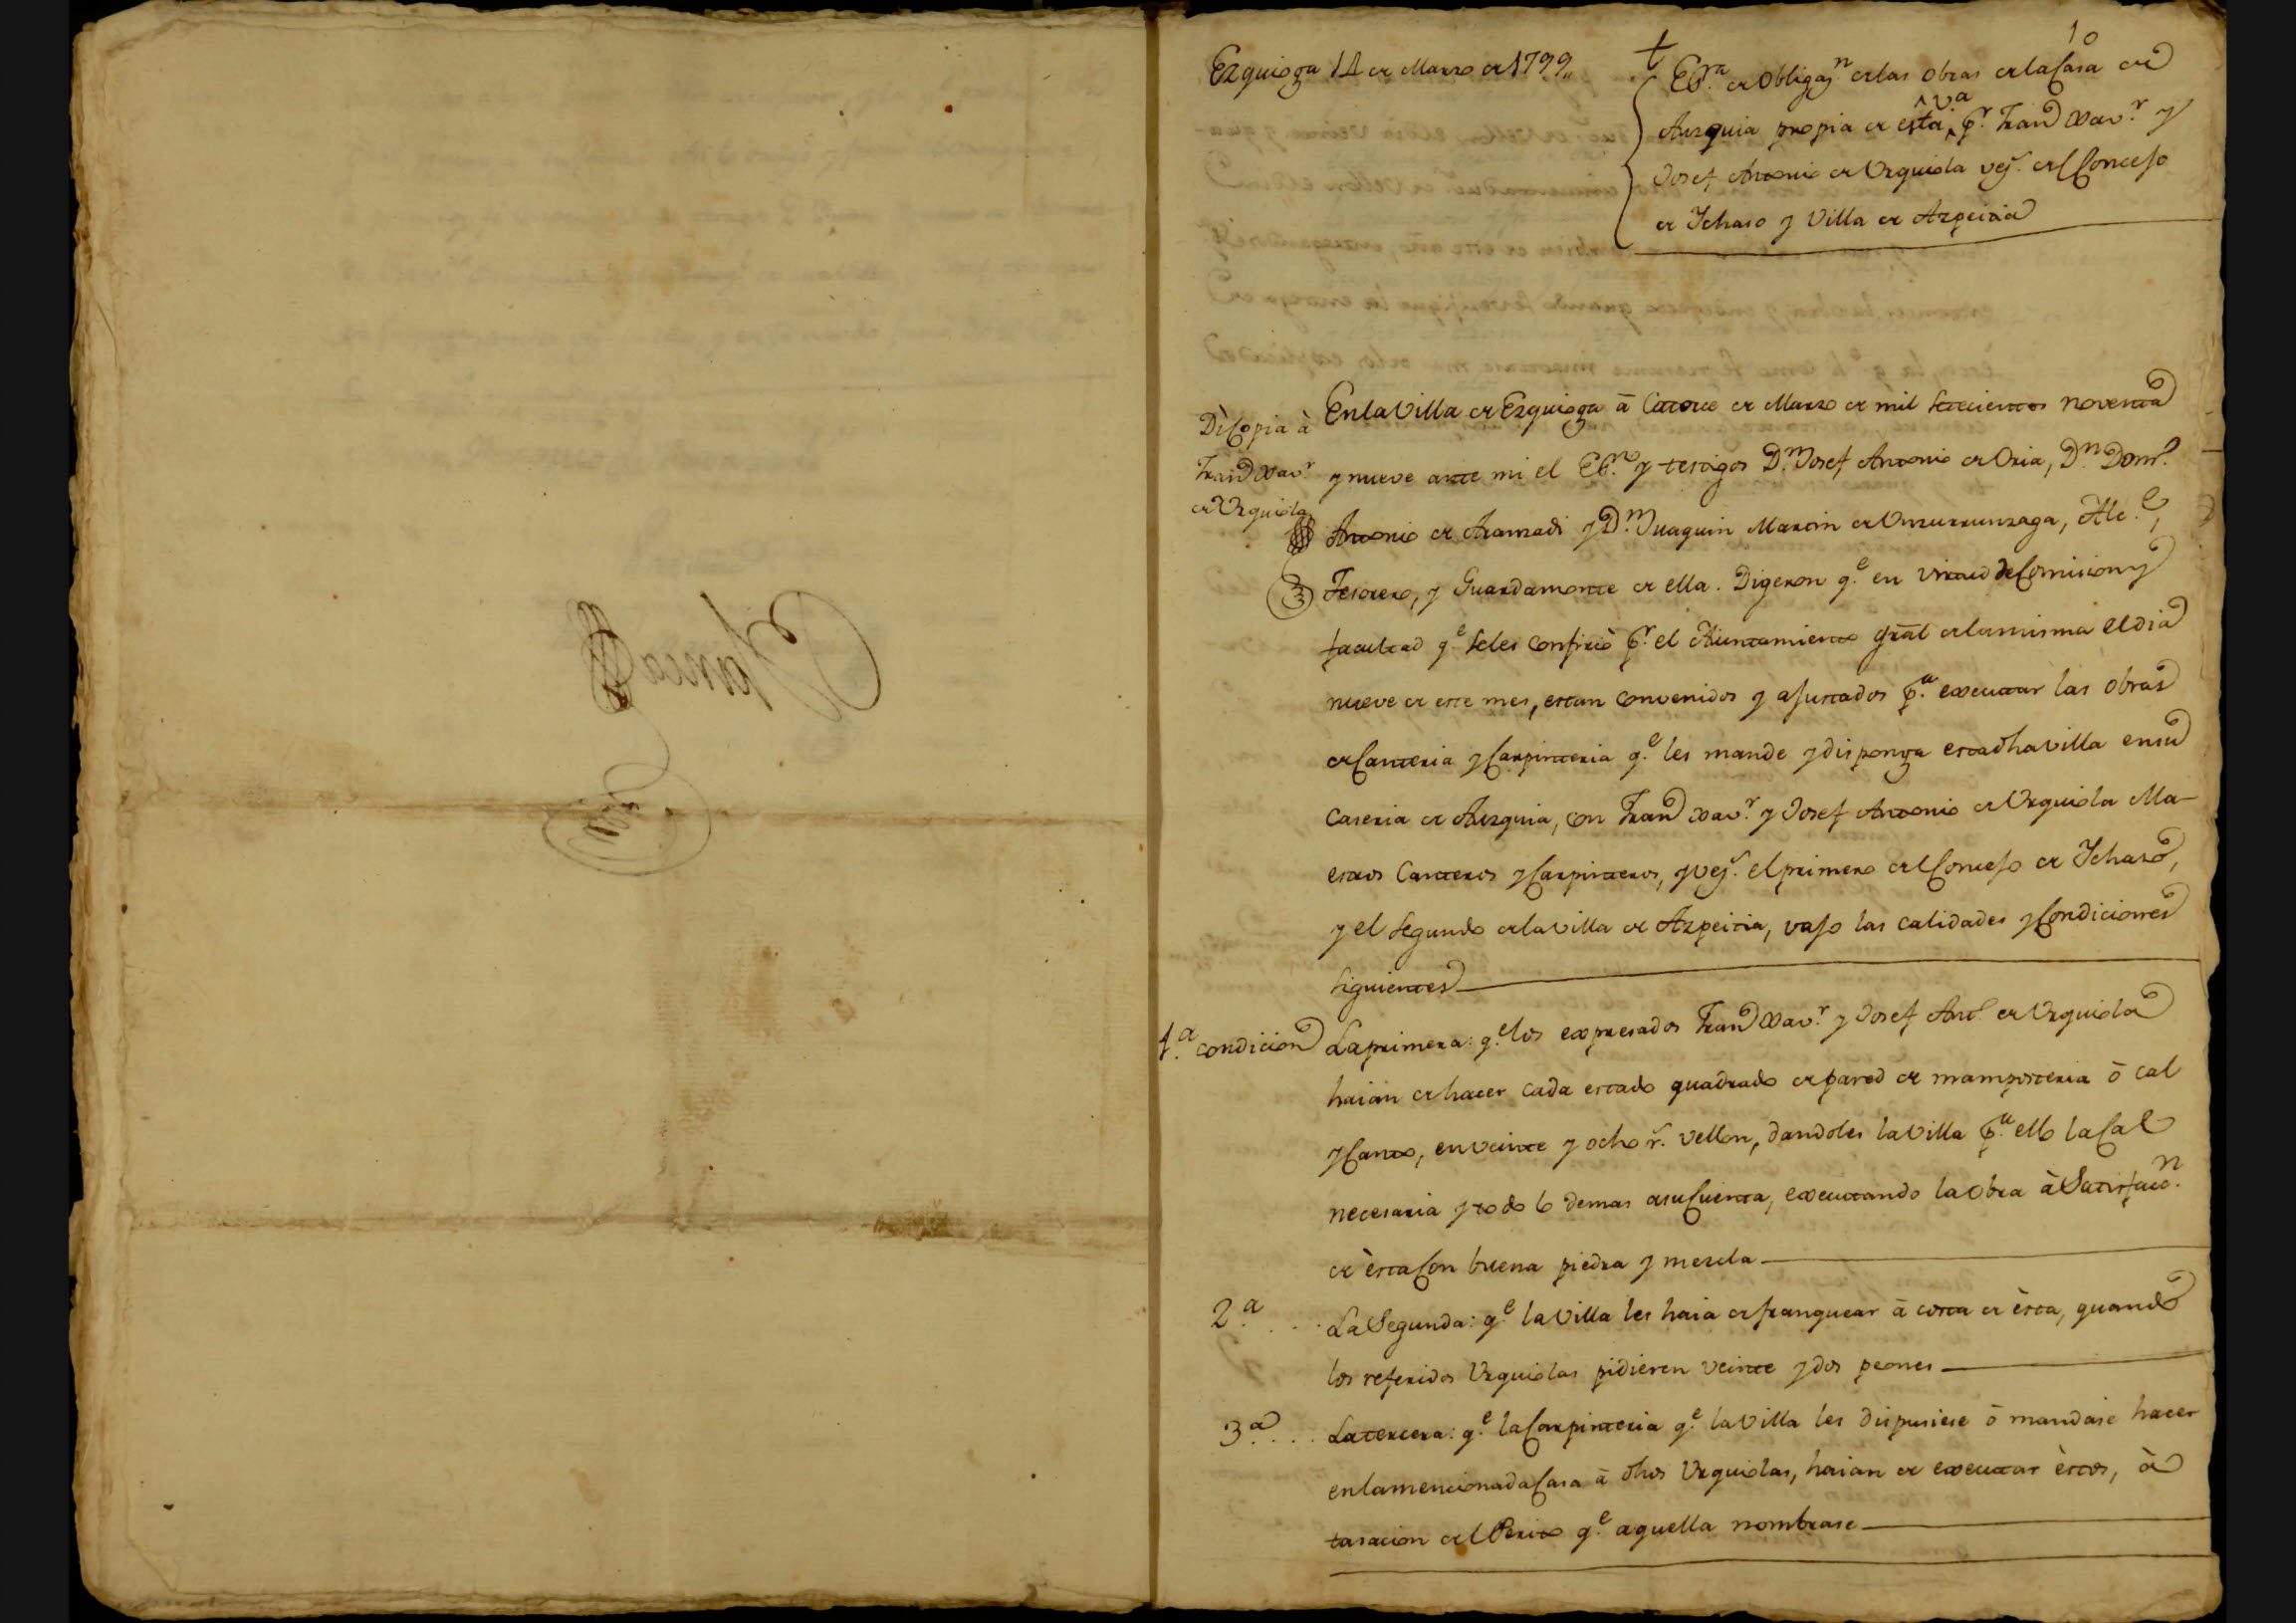 10
Ezquioga 14 de Marzo de 1799,,
Essra de Obligazn de las obras de la Casa de
Auzquia propia de esta va pr Franco Xavr y
Josef Antonio de Urquiola vezs del Concejo
de Ichaso y Villa de Azpeitia
Dì Copia à
Franco Xavr
de Urquiola
En la Villa de Ezquioga â Catorce de Marzo de mil setecientos noventa
y nueve ante mi el Essno y testigos Dn Josef Antonio de Oria, Dn Domo
Antonio de Aramzadi y Dn Juaquin Martin de Unzurrunzaga, Alce,
Tesorero, y Guardamonte de ella. Digeron qe en virtud de Comision y
facultad qe seles confiriò pr el Aiuntamiento gral de la misma el dia
nueve de este mes, estan convenidos y ajustados pa executar las obras
de Canteria y Carpinteria qe les mande y disponga esta dha villa en su
Caseria de Auzquia, con Franco Xavr y Josef Antonio de Urquiola Ma-
estros Canteros y Carpinteros, y vezs el primero del Concejo de Ichaso,
y el segundo de la villa de Azpeitia, vajo las calidades y Condiciones
siguientes
1.a condicion La primera: qe los expresados Franco Xavr y Josef Anto de Urquiola
haian de hacer cada estado quadrado de pared de mamposteria ô cal
y Canto, en veinte y ocho rs vellon, dandoles la Villa pa ello la Cal
necesaria y todo lo demas a su Cuenta, executando la obra à Satisfaccn
de èsta Con buena piedra y mezcla
2.a ... La Segunda: qe la Villa les haia de franquear â costa de èsta, quando
los referidos Urquiolas pidieren veinte y dos peones
3.a ... La tercera: qe la Carpinteria qe la Villa les dispusiese ô mandase hacer
en la mencionada Casa â dhos Urquiolas, haian de executar èstos, à
tasacion del Perito qe aquella nombrase